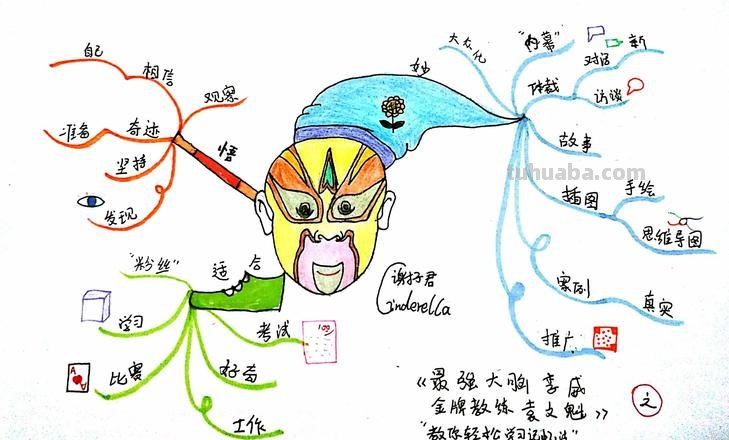 自己
相信
观察
准备
奇迹
坚持
悟
发现
妙
大众化
"内幕"
对话
新
体裁
访谈
故事
tuhuaba.com
插图
手绘
思维导图
案例
真实
推广
"粉丝"
适合
学习
考试
100
比赛
A
好苗
工作
Cinderella
《最强大脑李威
金牌教练袁文魁》
之
"教你轻松学习记忆法"